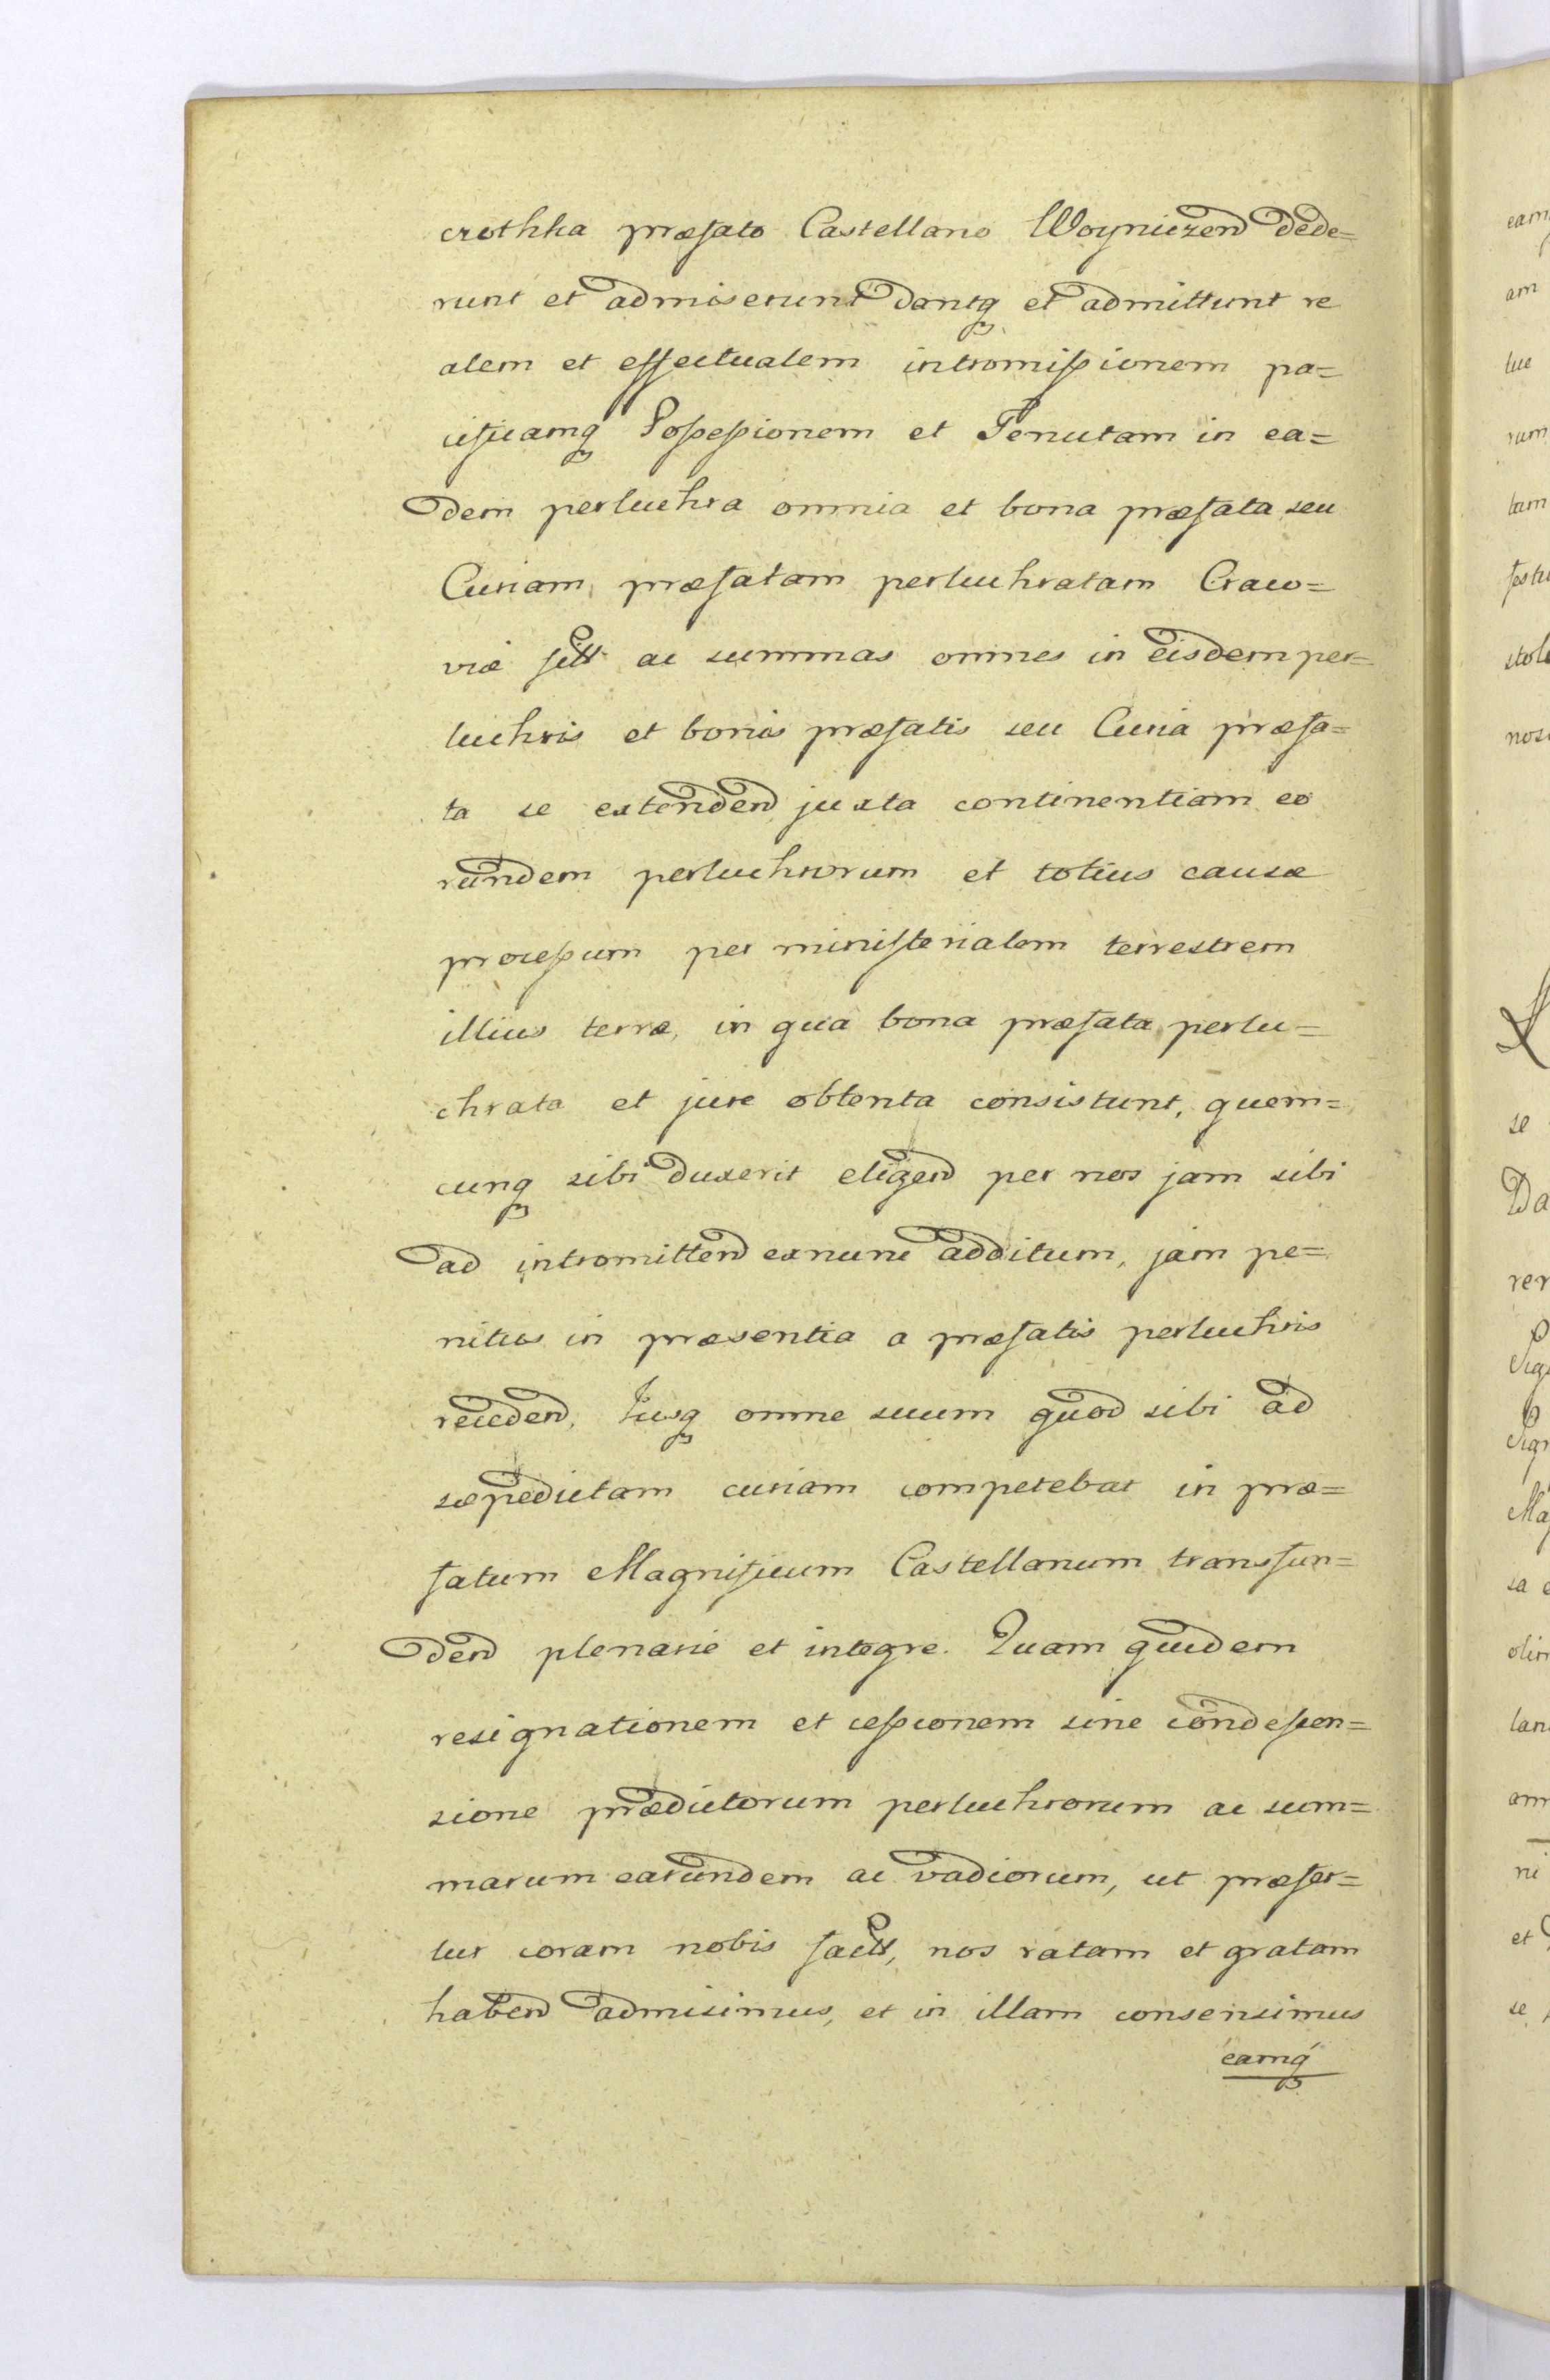 crothka præfato Castellano Woyniczen̄ dede=
runt et admiserunt dantq̄ et admittunt re
alem et effectualem intromißionem pa=
cificamq̄ Poßeßionem et Tenutam in ea=
dem perluchra omnia et bona præfata seu
Curiam præfatam perluchratam Craco=
viæ sitt ac summas omnes in eisdem per=
luchris et bonis præfatis seu Curia præfa=
ta se extenden̄ juxta continentiam eo
rundem perluchrorum et totius causæ
proceßum per ministerialem terrestrem
illius terræ, in qua bona præfata perlu=
chrata et jure obtenta consistunt, quem=
cunq̄ sibi duxerit eligen̄ per nos jam sibi
ad intromitten̄ exnunc additum, jam pe=
nitus in præsentia a præfatis perluchris
receden̄, Jusq̄ omne suum quod sibi ad
sæpedictam curiam competebat in præ=
fatum Magnificum Castellanum transfun=
den̄ plenarie et integre. Quam quidem
resignationem et ceßionem sine condescen=
sione prædictorum perluchrorum ac sum=
marum earundem ac vadiorum, ut præfer=
tur coram nobis factt, nos ratam et gratam
haben̄ admisimus, et in illam consensimus
eamq̄